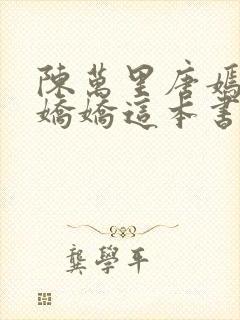 陳萬里唐嫣
嬌嬌這本書
龔學平